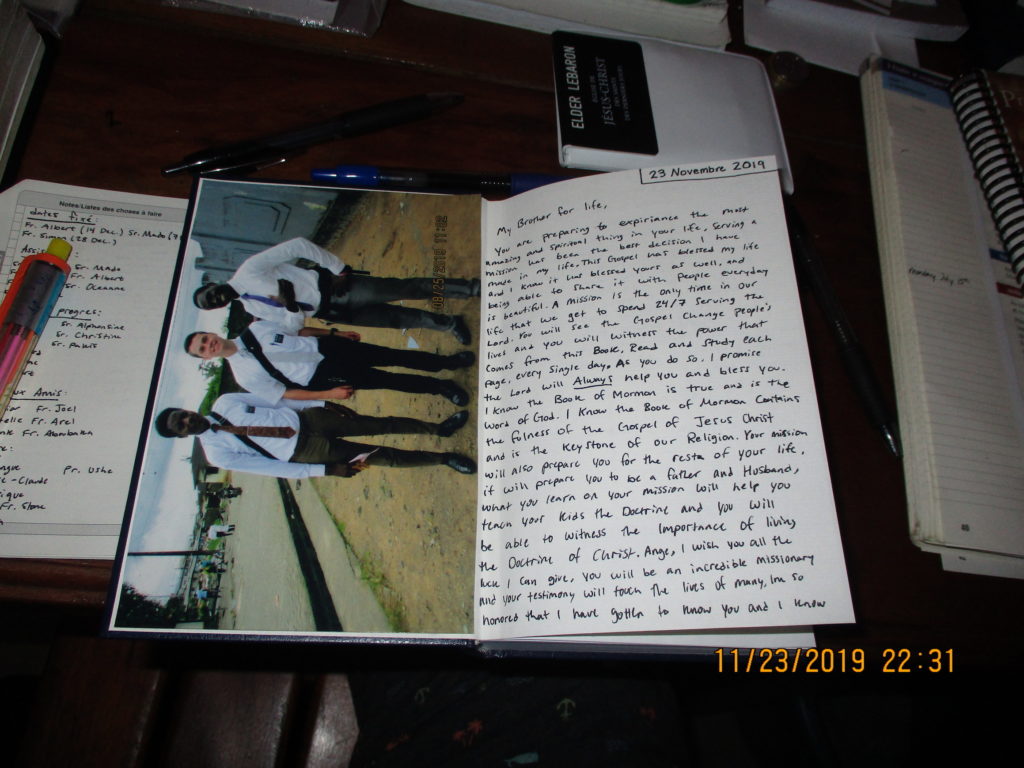 ELDER LEBARON
ÉGLISE DE
JÉSUS-CHRIST
DES SAINTS
DES DERNIERS JOURS
Notes/Listes des choses à faire
dates fixé:
Fr. Albert (14 Dec.) Sr. Mado (7
Fr. Simon (28 Dec.)
Sr. Mado
Fr. Albert
Sr. Oceanne
progres:
Sr. Alphonsine
Sr. Christine
Amis:
Fr. Joel
Fr. Arel
Pr. Ushe
-Claude
Fr. Stone
08/25/2019 11:02
23 Novembre 2019
My Brother for life,
You are preparing to expiriance the most
amazing and spiritual thing in your life, serving a
mission has been the best decision I have
made in my life. This Gospel has blessed my life
and I know it has blessed yours as well, and
being able to share it with people everyday
is beautiful. A mission is the only time in our
life that we get to spend 24/7 serving the
Lord. You will see the Gospel Change people's
lives and you will witness the power that
comes from this Book, Read and Study each
page, every single day. As you do so, I promise
the Lord will Always help you and bless you.
I know the Book of Mormon is true and is the
word of God. I Know the Book of Mormon Contains
the fulness of the Gospel of Jesus Christ
and is the Keystone of our Religion. Your mission
will also prepare you for the resta of your life,
it will prepare you to be a father and Husband,
what you learn on your mission will help you
teach your kids the Doctrine and you will
be able to witness the importance of living
the Doctrine of Christ. Ange, I wish you all the
luck I can give, you will be an incredible missionary
and your testimony will touch the lives of many, Im so
honored that I have gotten to know you and I know
Monday July 15th
11/23/2019 22:31